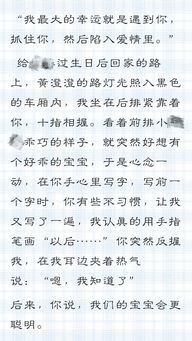 “我最大的幸运就是遇到你，
抓住你，然后陷入爱情里。”
给 过生日后回家的路
上，黄澄澄的路灯光照入黑色
的车厢内，我坐在后排紧靠着
你，十指相握。看着前排小
乖巧的样子，就突然好想有
个好乖的宝宝，于是心念一
动，在你手心里写字，写前一
个字时，你有些不习惯，让我
又写了一遍，我认真的用手指
笔画“以后……”你突然反握
我，在我耳边夹着热气
说：“嗯，我知道了”
后来，你说，我们的宝宝会更
聪明。